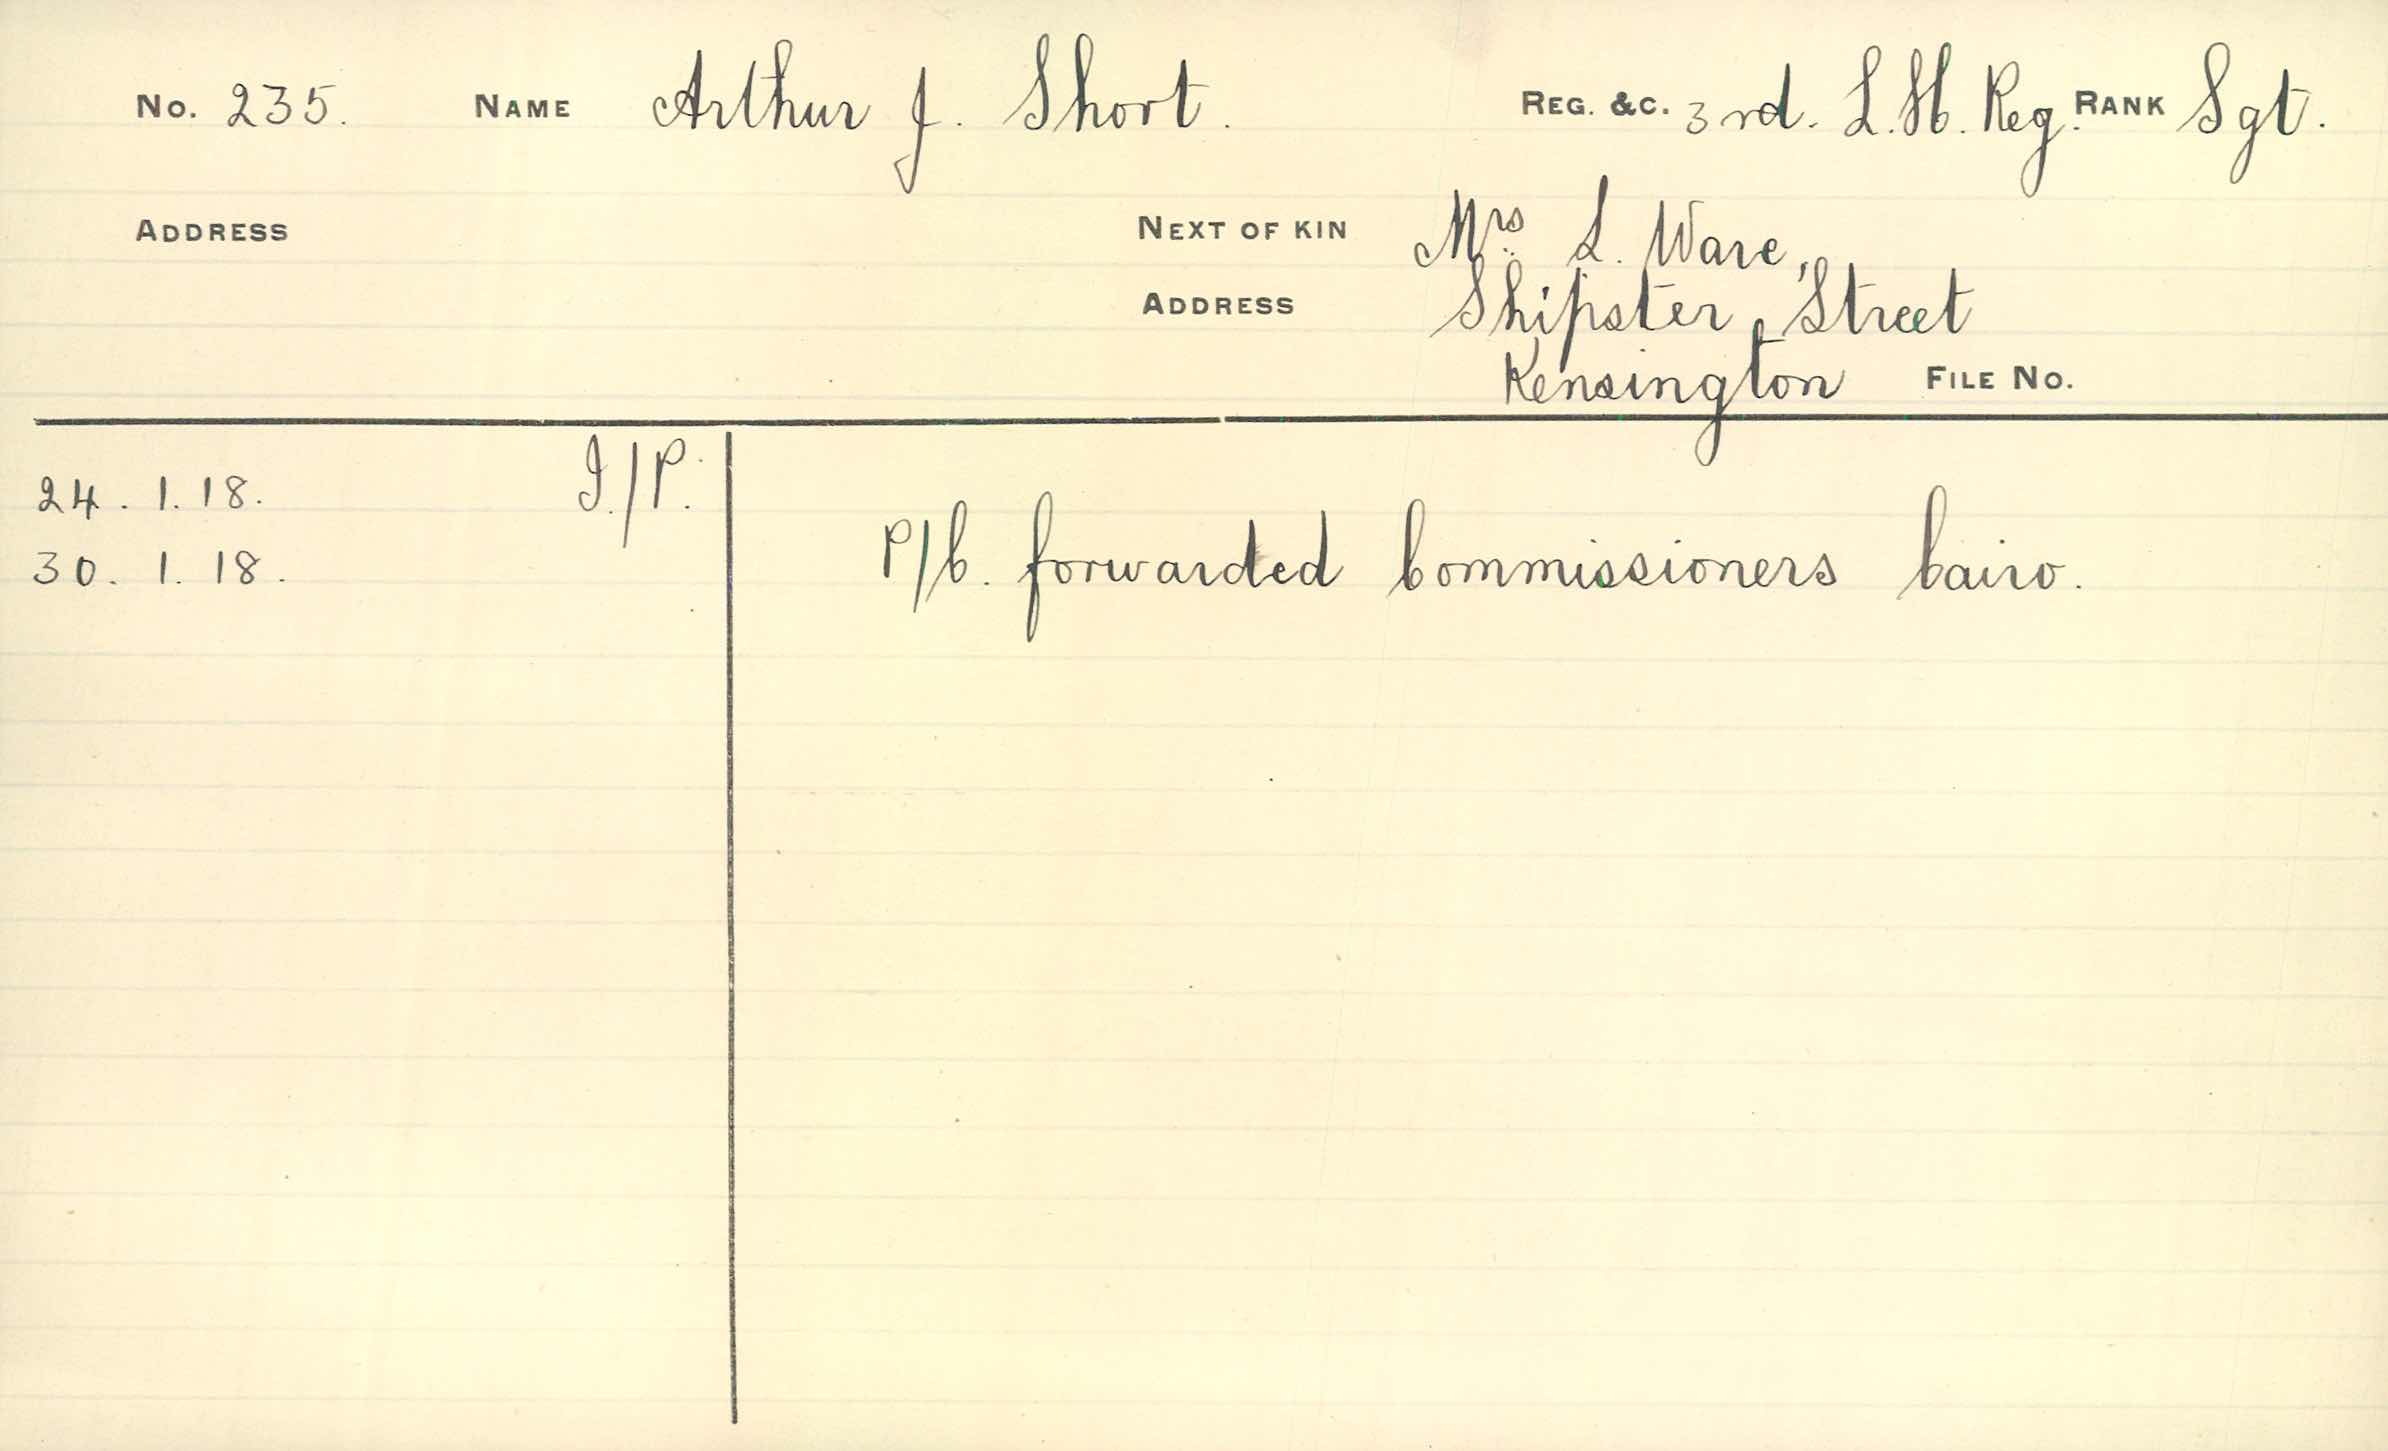 No. 235. NAME Arthur J. Short. REG. &C. 3rd. L.H. Reg. RANK Sgt.
ADDRESS NEXT OF KIN Mrs. L. Ware,
ADDRESS Shipster Street
Kensington FILE No.
24. 1. 18. I./P.
30. 1. 18. P/C. forwarded Commissioners Cairo.